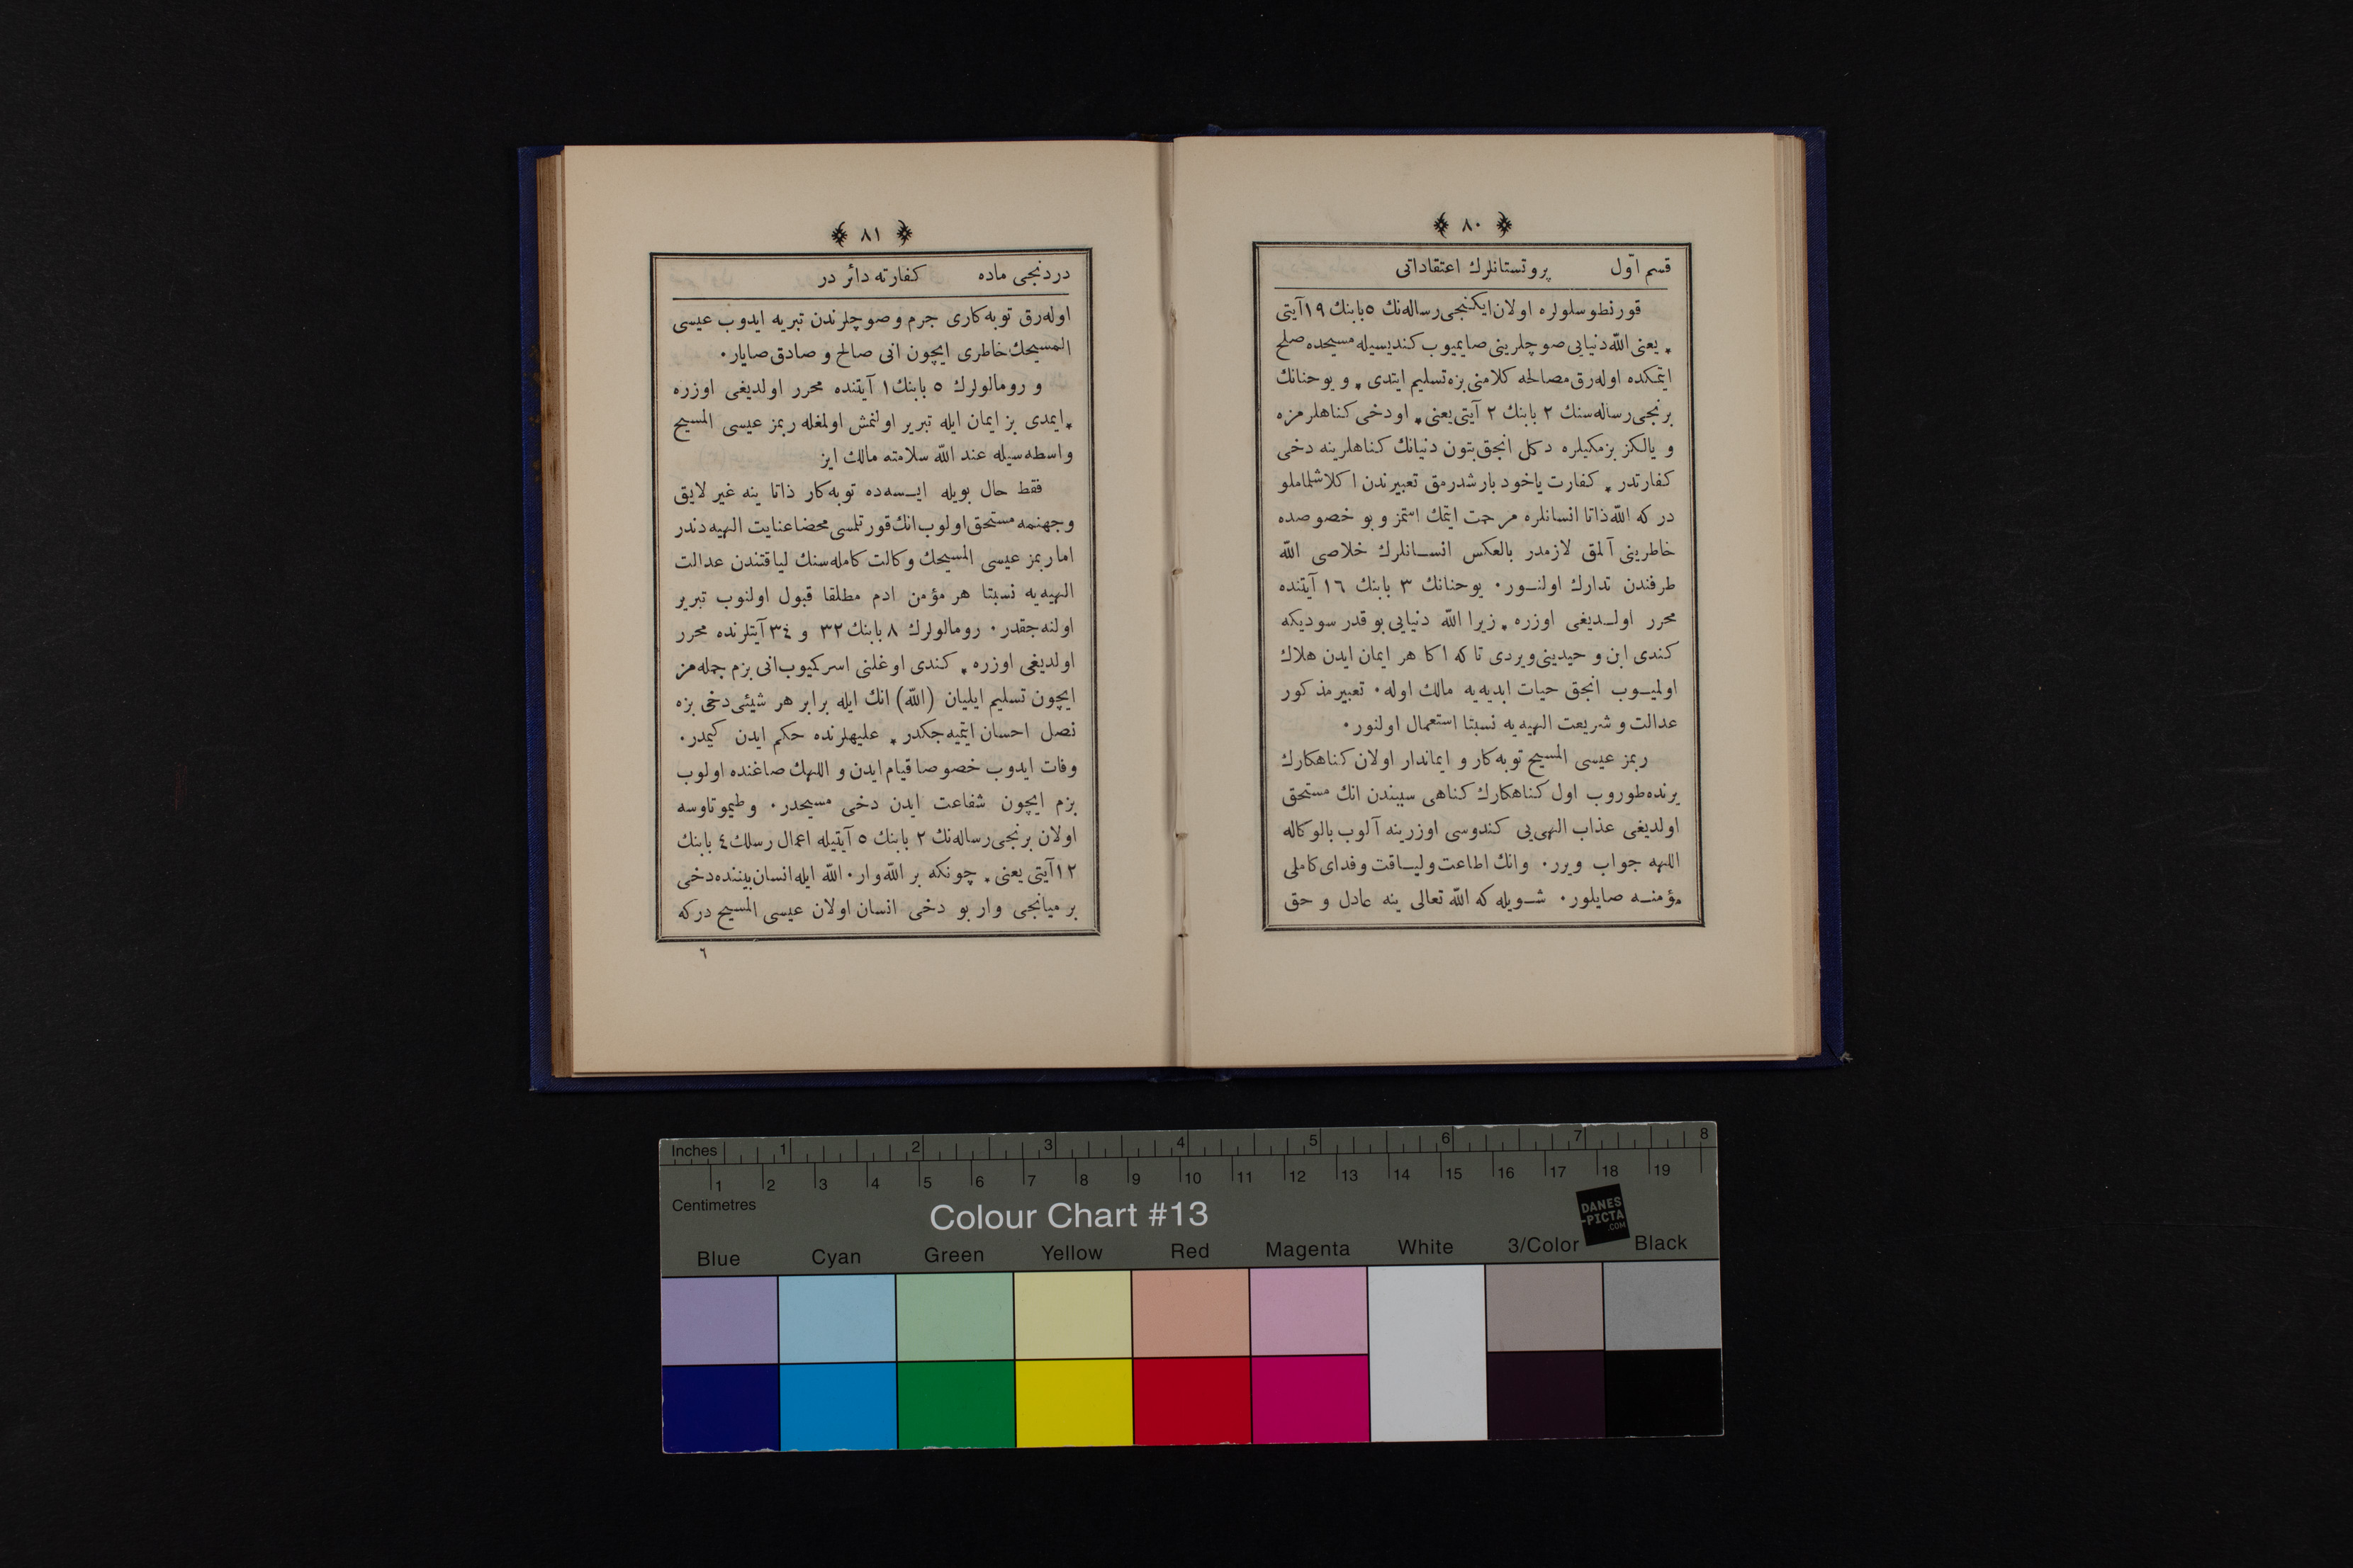 ﴿ ٨٠ ﴾
قسم اوّل پروتستانلرك اعتقاداتی
قورنطوسلولره اولان ایكنجی رساله‌نك ٥ بابنك ١٩ آیتی
٭ یعنی اللّه دنیایی صوچلرینی صایمیوب كندیسیله مسیحده صلح
ایتمكده اوله‌رق مصالحه كلامنی بزه تسلیم ایتدی ٭ و یوحنانك
برنجی رساله‌سنك ٢ بابنك ٢ آیتی یعنی ٭ اودخی كناهلرمزه
و یالكز بزمكیلره دكل انجق بتون دنیانك كناهلرینه دخی
كفارتدر ٭ كفارت یاخود بارشدرمق تعبیرندن اكلاشلماملو
در كه اللّه ذاتا انسانلره مرحمت ایتمك استمز و بو خصوصده
خاطرینی آلمق لازمدر بالعكس انسانلرك خلاصی اللّه
طرفندن تدارك اولنور٠ یوحنانك ٣ بابنك ١٦ آیتنده
محرر اولدیغی اوزره ٭ زیرا اللّه دنیایی بو قدر سودیكه
كندی ابن وحیدینی ویردی تا كه اكا هر ایمان ایدن هلاك
اولمیوب انجق حیات ابدیه‌یه مالك اوله٠ تعبیر مذكور
عدالت و شریعت الهیه‌یه نسبتا استعمال اولنور٠
ربمز عیسی المسیح توبه‌كار و ایماندار اولان كناهكارك
یرنده طوروب اول كناهكارك كناهی سببندن انك مستحق
اولدیغی عذاب الهی‌یی كندوسی اوزرینه آلوب بالوكاله
اللهه جواب ویرر٠ وانك اطاعت ولیاقت وفدای كاملی
مؤمنه صایلور٠ شویله كه اللّه تعالی ینه عادل و حق
﴿ ٨١ ﴾
دردنجی ماده كفارته دائر در
اوله‌رق توبه‌كاری جرم وصوچلرندن تبریه ایدوب عیسی
المسیحك خاطری ایچون انی صالح و صادق صایار٠
و رومالولرك ٥ بابنك ١ آیتنده محرر اولدیغی اوزره
٭ ایمدی بز ایمان ایله تبریر اولنمش اولمغله ربمز عیسی المسیح
واسطه‌سیله عند اللّه سلامته مالك ایز
فقط حال بویله ایسه‌ده توبه‌كار ذاتا ینه غیر لایق
وجهنمه مستحق اولوب انك قورتلمسی محضا عنایت الهیه‌دندر
اما ربمز عیسی المسیحك وكالت كامله‌سنك لیاقتندن عدالت
الهیه‌یه نسبتا هر مؤمن ادم مطلقا قبول اولنوب تبریر
اولنه‌جقدر٠ رومالولرك ٨ بابنك ٣٢ و ٣٤ آیتلرنده محرر
اولدیغی اوزره ٭ كندی اوغلنی اسركمیوب انی بزم جمله‌مز
ایچون تسلیم ایلیان (اللّه) انك ایله برابر هر شیئی دخی بزه
نصل احسان ایتمیه‌جكدر ٭ علیهلرنده حكم ایدن كیمدر٠
وفات ایدوب خصوصا قیام ایدن و اللهك صاغنده اولوب
بزم ایچون شفاعت ایدن دخی مسیحدر٠ وطیموتاوسه
اولان برنجی رساله‌نك ٢ بابنك ٥ آیتیله اعمال رسلك ٤ بابنك
١٢ آیتی یعنی ٭ چونكه بر اللّه وار٠ اللّه ایله انسان بیننده دخی
بر میانجی وار بو دخی انسان اولان عیسی المسیح دركه
٦
Inches 1 2 3 4 5 6 7 8
1 2 3 4 5 6 7 8 9 10 11 12 13 14 15 16 17 18 19
Centimetres
Colour Chart #13
DANES
-PICTA
.COM
Blue Cyan Green Yellow Red Magenta White 3/Color Black